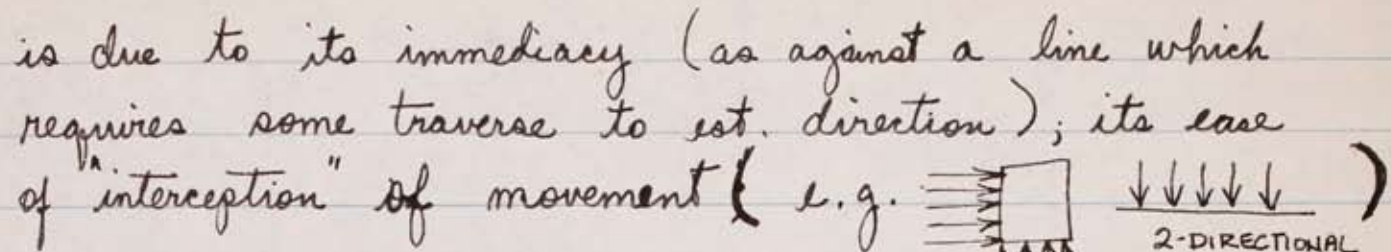 is due to its immediacy (as against a line which
requires some traverse to est. direction); its ease
of "interception" of movement ( e.g. )
2-DIRECTIONAL